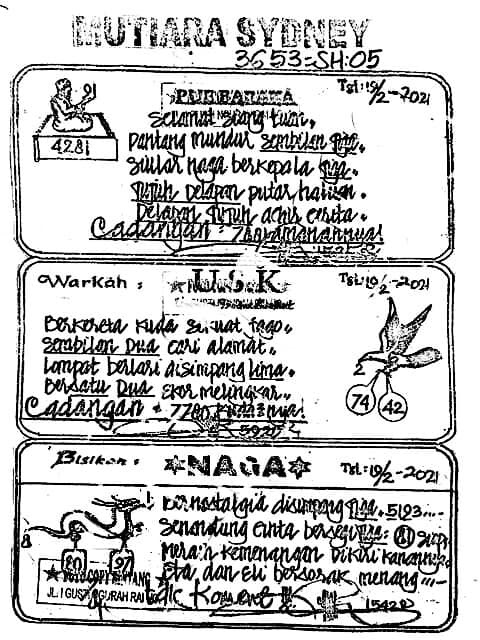 MUTIARA SYDNEY
3653-SH:05
PURBARAKA
Tgl: 19/2-2021
4281
Selamat siang tuan.
Pantang mundur sembilan tiga.
Siular naga berkepala tiga.
Tujuh Delapan putar haluan.
Delapan Tujuh achir cerita.
Cadangan =
Warkah :
U.S.K
Tgl: 19/2-2021
Berkereta kuda sekuat
Sembilan Dua cari alamat.
Lompat berlari disimpang lima.
Bersatu Dua Ekor melingkar.
Cadangan +
5920
2
74
42
Bisikan :
NAGA
Tgl: 19/2-2021
Bernostalgia disimpang tiga. 5193...
Senandung cinta bersegi tiga: 81
Merain Kemenangan Dikiri Kanannya.
Eta dan Eli bersorak menang
8
80
97
JL. I GUSTI NGURAH RAI
Koment